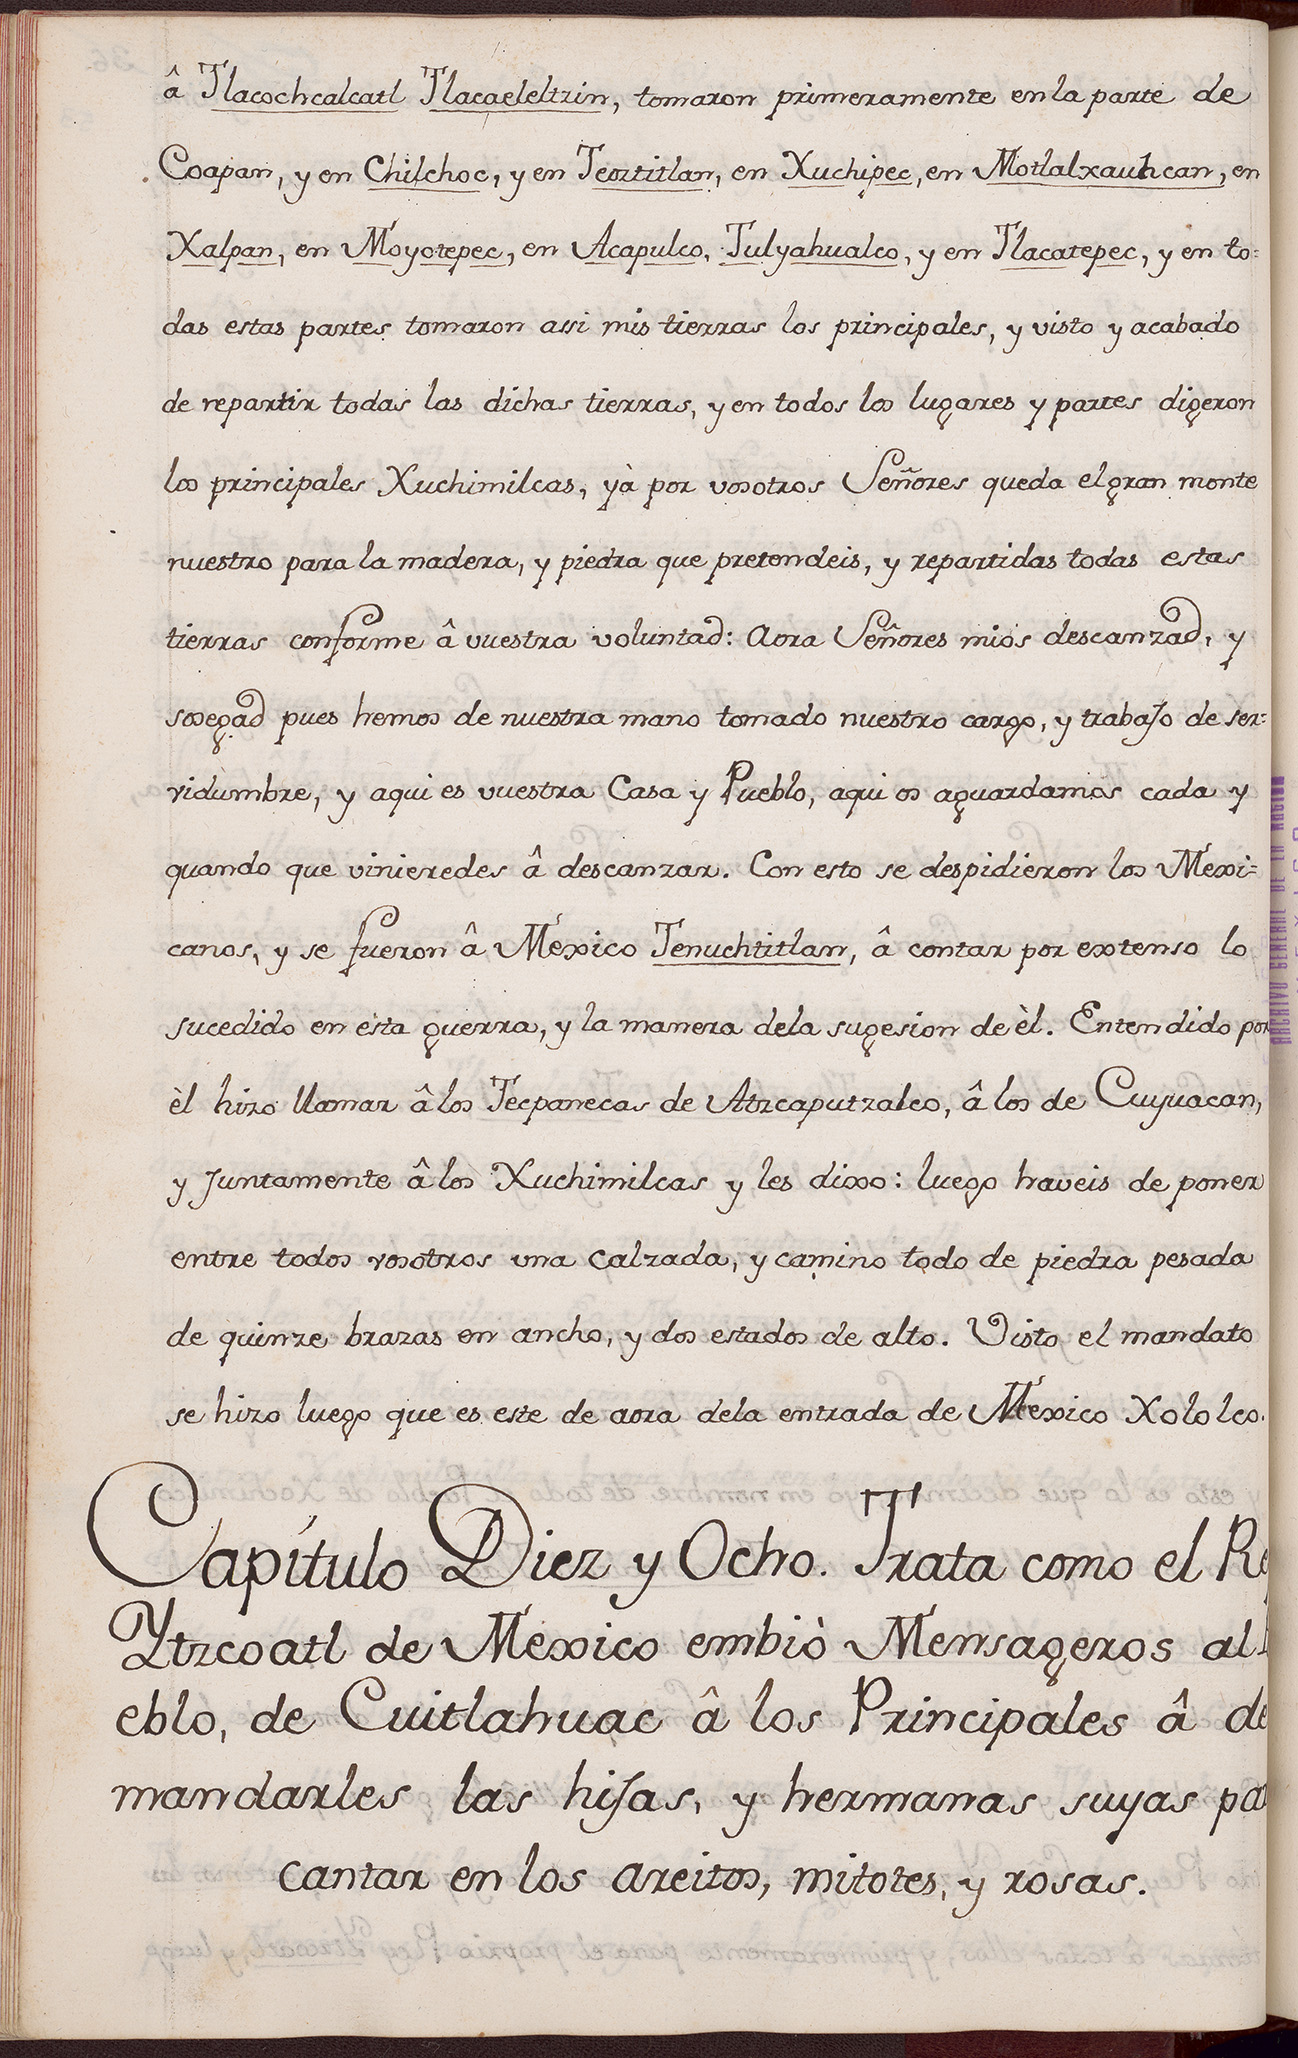 â Tlacochcalcatl Tlacaeleltzin, tomaron primeramente en la parte de
Coapan, y en Chilchoc, y en Teoztitlan, en Xuchipec, en Motlalxauhcan, en
Xalpan, en Moyotepec, en Acapulco, Tulyahualco, y en Tlacatepec, y en to=
das estas partes tomaron assi mis tierras los principales, y visto y acabado
de repartir todas las dichas tierras, y en todos los lugares y partes digeron
los principales Xuchimilcas, yà por vosotros Señores queda el gran monte
nuestro para la madera, y piedra que pretendeis, y repartidas todas estas
tierras conforme â vuestra voluntad: Aora Señores mios descanzad, y
sosegad pues hemos de nuestra mano tomado nuestro cargo, y trabajo de ser=
vidumbre, y aqui es vuestra Casa y Pueblo, aqui os aguardamos cada y
quando que vinieredes â descanzar. Con esto se despidieron los Mexi=
canos, y se fueron â Mexico Tenuchtitlan, â contar por extenso lo
sucedido en esta guerra, y la manera dela sugesion de èl. Entendido por
èl hizo llamar â los Tecpanecas de Atzcaputzalco, â los de Cuyuacan,
y Juntamente â los Xuchimilcas y les dixo: luego haveis de poner
entre todos vosotros una Calzada, y camino todo de piedra pesada
de quinze brazas en ancho, y dos estados de alto. Visto el mandato
se hizo luego que es este de aora dela entrada de Mexico Xololco.
Capítulo Diez y Ocho. Trata como el
Ytzcoatl de Mexico embiò Mensageros al
eblo, de Cuitlahuac â los Principales â de
mandarles las hijas, y hermanas suyas
cantar en los areitos, mitotes, y rosas.
ARCHIVO GENERAL DE LA NACION